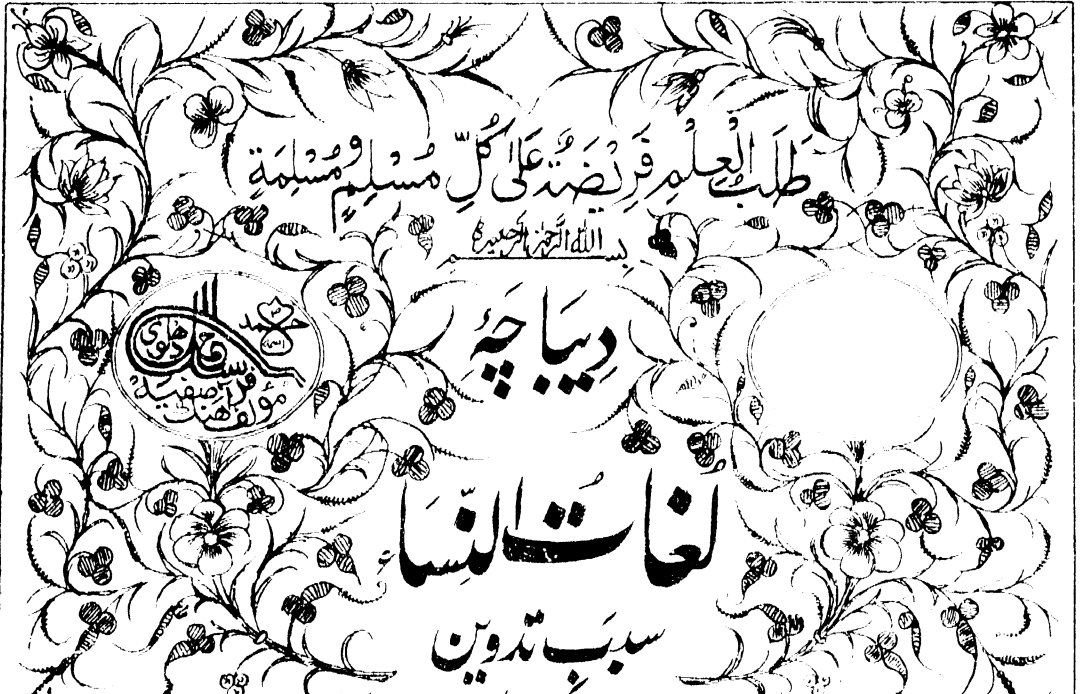 طَلَبُ الْعِلْمِ فَرِيْضَةٌ عَلٰى كُلِّ مُسْلِمٍ وَّ مُسْلِمَةٍ
بِسْمِ اللّٰهِ الرَّحْمٰنِ الرَّحِيْمِ
دِيباچَۂ
سيد احمد دهلوی
مؤلف فرهنگ آصفيه
لُغاتُ النِّسَاء
سببِ تدوین